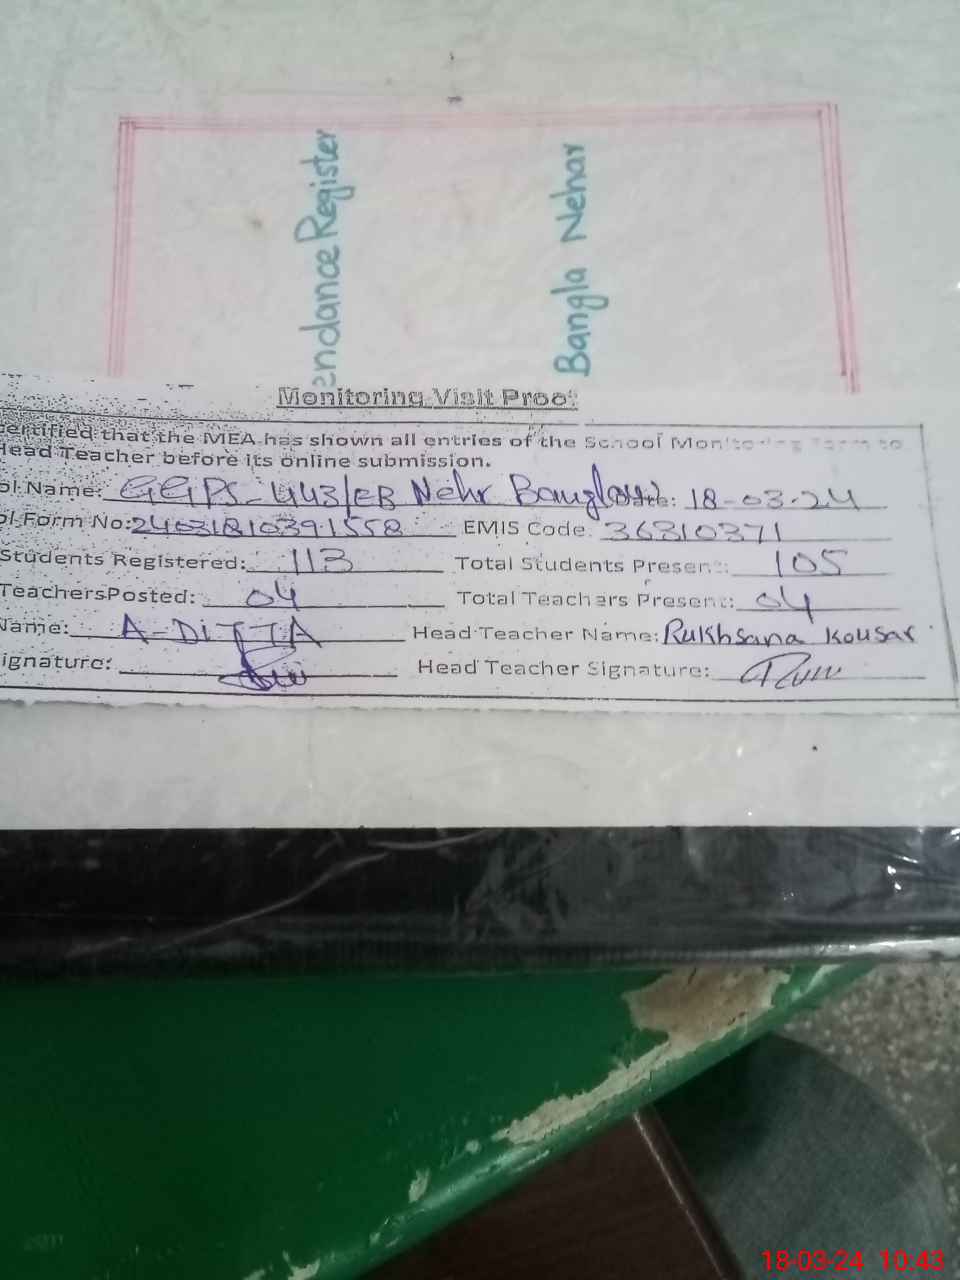 endance Register
Bangla Nehar
Monitoring Visit Proof
ertified that the MEA has shown all entries of the School Monitoring Form to
Head Teacher before its online submission.
ol Name: GGPS-443/EB Nehr Banglow Date: 18-03-24
ol Form No: 24031810391558 EMIS Code 36310371
Students Registered: 113 Total Students Present: 105
TeachersPosted: 04 Total Teachers Present: 04
Name: A-DITTA Head Teacher Name: Rukhsana Kousar
ignature: Head Teacher Signature:
18-03-24 10:43